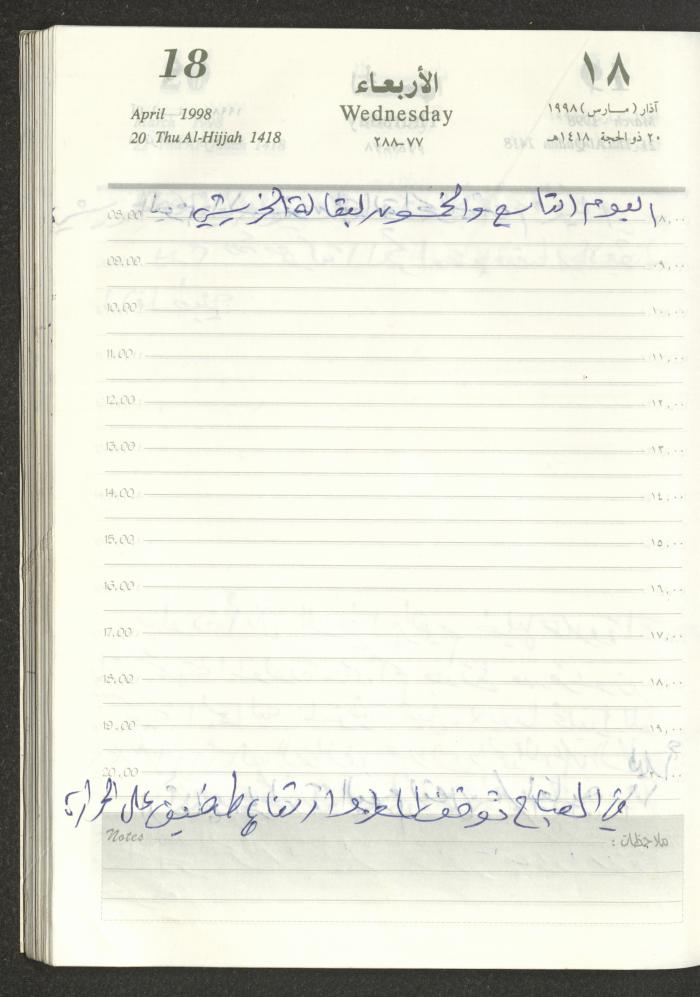 18
الأربعاء
١٨
April 1998
Wednesday
آذار (مارس) ١٩٩٨
20 Thu Al-Hijjah 1418
٧٧-٢٨٨
٢٠ ذو الحجة ١٤١٨هـ
اليوم التاسع والخمسون لبقالة الخريشي
08.00 ٨.٠٠
09.00 ٩.٠٠
10.00 ١٠.٠٠
11.00 ١١.٠٠
12.00 ١٢.٠٠
13.00 ١٣.٠٠
14.00 ١٤.٠٠
15.00 ١٥.٠٠
16.00 ١٦.٠٠
17.00 ١٧.٠٠
18.00 ١٨.٠٠
19.00 ١٩.٠٠
20.00
في الصباح توقف المطر وارتفاع طفيف على الحرارة
Notes ملاحظات :